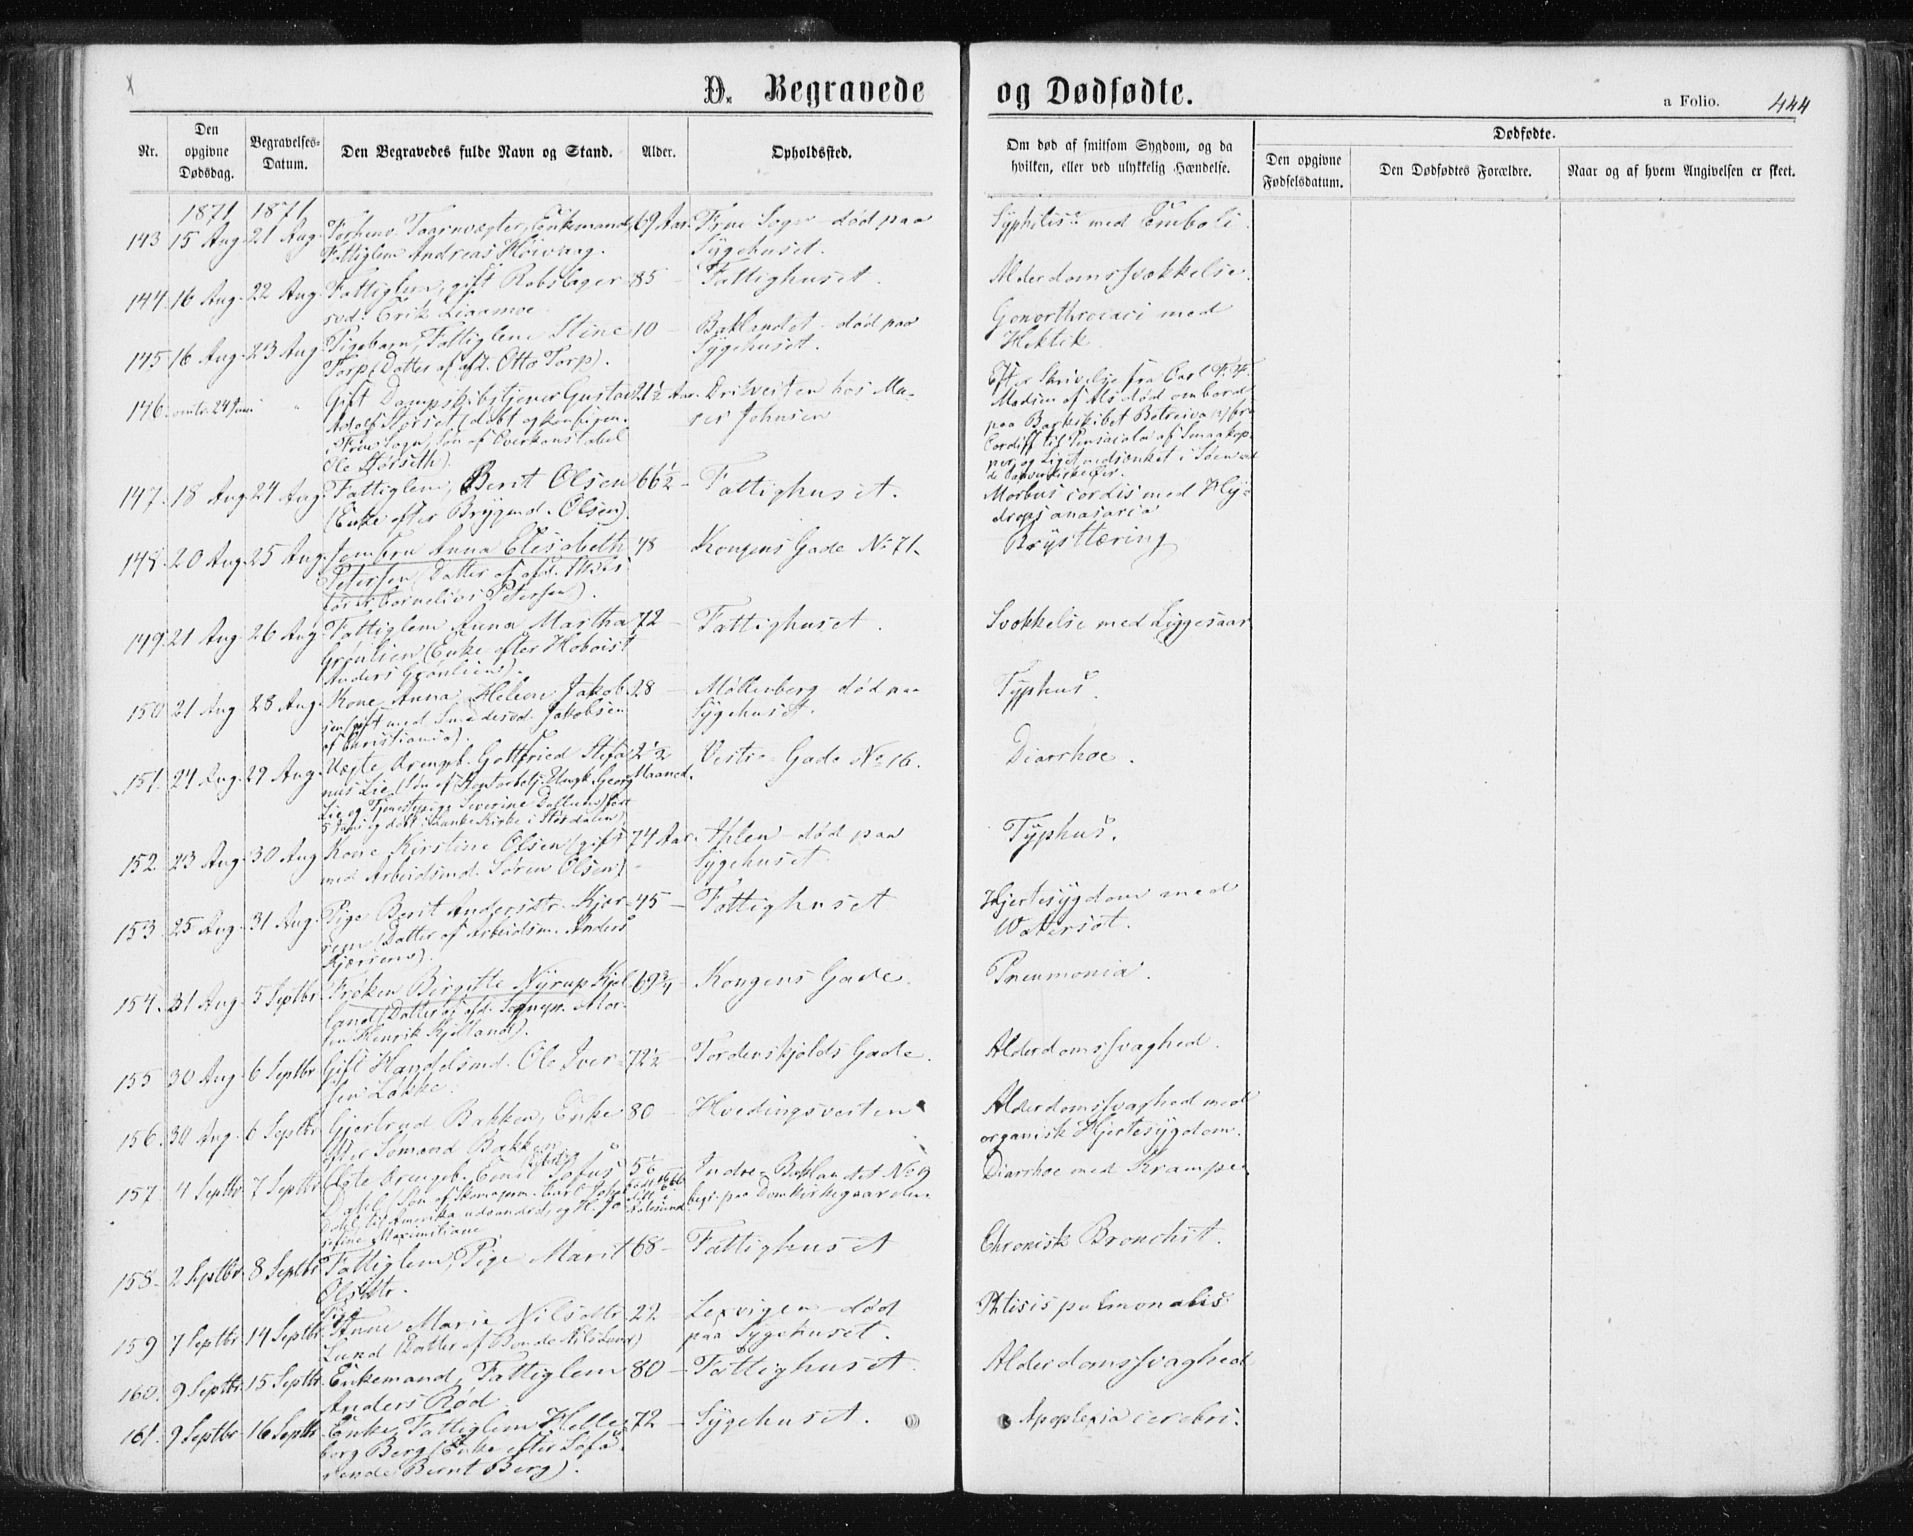 D. Begravede og Dødfødte.
a Folio. 444
Nr.
Den opgivne Dødsdag.
Begravelses-Datum.
Den Begravedes fulde Navn og Stand.
Alder.
Opholdssted.
Om død af smitsom Sygdom, og da hvilken, eller ved ulykkelig Hændelse.
Dødfødte.
Den opgivne Fødselsdatum.
Den Dødfødtes Forældre.
Naar og af hvem Angivelsen er skeet.
1871 1871
143 15 Aug. 21 Aug. Forhenv. Taarnvægter, Enkemand, 69 Aar. Frue Sogn død paa Syphilis med Emboli.
Fattiglem Andreas Höivaag. Sygehuset.
144. 16 Aug. 22 Aug. Fattiglem, gift Rebslager 85 - Fattighuset. Alderdomssvækkelse.
svd. Erik Liaamoe.
145 16 Aug. 23 Aug. Pigebarn, Fattiglem Stine 10 - Baklandet død paa Gonarthrocaci med
Torp (Datter af afd. Otto Torp). Sygehuset. Hektik.
146. omtr. 24 Juni " Gift Dampskibstjener Gustav 21½ Aar. Drikveiten hos Ma- Efter Skrivelse fra Carl F. F.
Adolf Störset (döbt og konfirm. Johnsen Madsen af Als død ombord
i Frue Sogn, Søn af Overkonstabel paa Barkskibet
Ole Störseth). Cardiff til Pensacola af Smaakop-
per, og Liget nedsænket i Søen
147. 18 Aug. 24 Aug. Fattiglem, Berit Olsen 66½ - Fattighuset. Morbus cordis med Hy-
(Enke efter Brygmd. Olsen). drops anasarca
148. 20 Aug. 25 Aug. Jomfru Anna Elisabeth 48 - Kongens Gade No 71. Brysttæring
Petersen, Datter af afd.
Cornelius Petersen).
149. 21 Aug. 26 Aug. Fattiglem Anna Martha 72 - Fattighuset. Svækkelse med Liggesaar
Grönlien (Enke efter Hoboist
Anders Grönlien).
150 21 Aug 28 Aug. Kone Anna Helene Jakob- 28 - Møllenberg død paa Typhus.
sen (gift med Smedesvd. Jakobsen Sygehuset.
af Christiania).
151. 24 Aug. 29 Aug. Uægte Drengeb. Gottfried Stefa- 2½ Maaned. Vestre Gade No 16. Diarrhoe.
nus Lie (Søn af Ungk. Georg
Lie og Tjenestepige Severine
152. 23 Aug. 30 Aug. Kone Kirstine Olsen (gift 74 Aar. Ihlen død paa Typhus.
med Arbeidsmd. Sören Olsen) Sygehuset.
153. 25 Aug. 31 Aug. Pige Berit Andersdtr. Kjær- 45 - Fattighuset Hjertesygdom med
rem (Datter af Arbeidsm. Anders Watersot.
Kjærem).
154. 31 Aug. 5 Septbr. Frøken Birgitte Nyrup Kjel- 69¾ - Kongens Gade. Pneumonia.
land (Datter af afd. Sognepr. Mor-
ten Henrik Kjelland).
155 30 Aug. 6 Septbr. Gift Handelsmd. Ole Iver- 72½ - Tordenskjolds Gade. Alderdomssvaghed.
sen Løkke.
156. 30 Aug. 6 Septbr. Gjertrud Bakken, Enke 80 - Hvedingsveiten Alderdomssvaghed med
efter Bakken organisk Hjertesygdom.
157. 4 Septbr. 7 Septbr. Ægte Drengeb. Emil Sofus 5 Indre Baklandet No 9 Diarrhoe med Krampe
Dahl (Søn af Carl begr. paa Domkirkegaarden
til Amerika udvandred, og
158. 2 Septbr. 8 Septbr. Fattiglem, Pige Marit 68 - Fattighuset Chronisk Bronchit.
Olsdtr.
159 7 Septbr. 14 Septbr. Pige Anne Marie Nilsdtr. 22 - Lexvigen død Phtisis pulmonalis
Lund (Datter af Bonde Nils Lund) paa Sygehuset.
160. 9 Septbr. 15 Septbr. Enkemand, Fattiglem 80 - Fattighuset. Alderdomssvaghed
Anders Rød.
161. 9 Septbr. 16 Septbr. Enke, Fattiglem Helle- 72 - Sygehuset. Apoplexia cerebri.
borg Berg (Enke efter Söfa-
rende Bernt Berg).